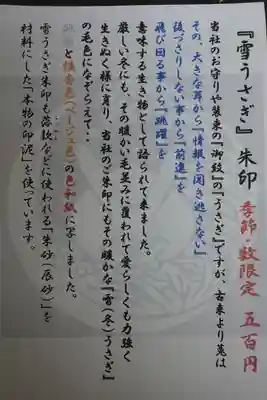 『雪うさぎ』朱印 季節・数限定 五百円
当社のお守りや装束の『御紋』の『うさぎ』ですが、古来より兎は
その、大きな耳から『情報を聞き逃さない』
後づさりしない事から『前進』を
飛び回る事から『跳躍』を
意味する生き物として語られて来ました。
厳しい冬にも、その暖かい毛並みに覆われて愛らしくも力強く
生きぬく様に肖り、当社のご朱印にもその暖かな『雪(冬)うさぎ』
の毛色になぞらえて・・
と 香色(ベージュ色)の色和紙に写しました。
雪うさぎ朱印も落款などに使われる『朱砂(辰砂)』を
材料にした『本物の印泥』を使っています。